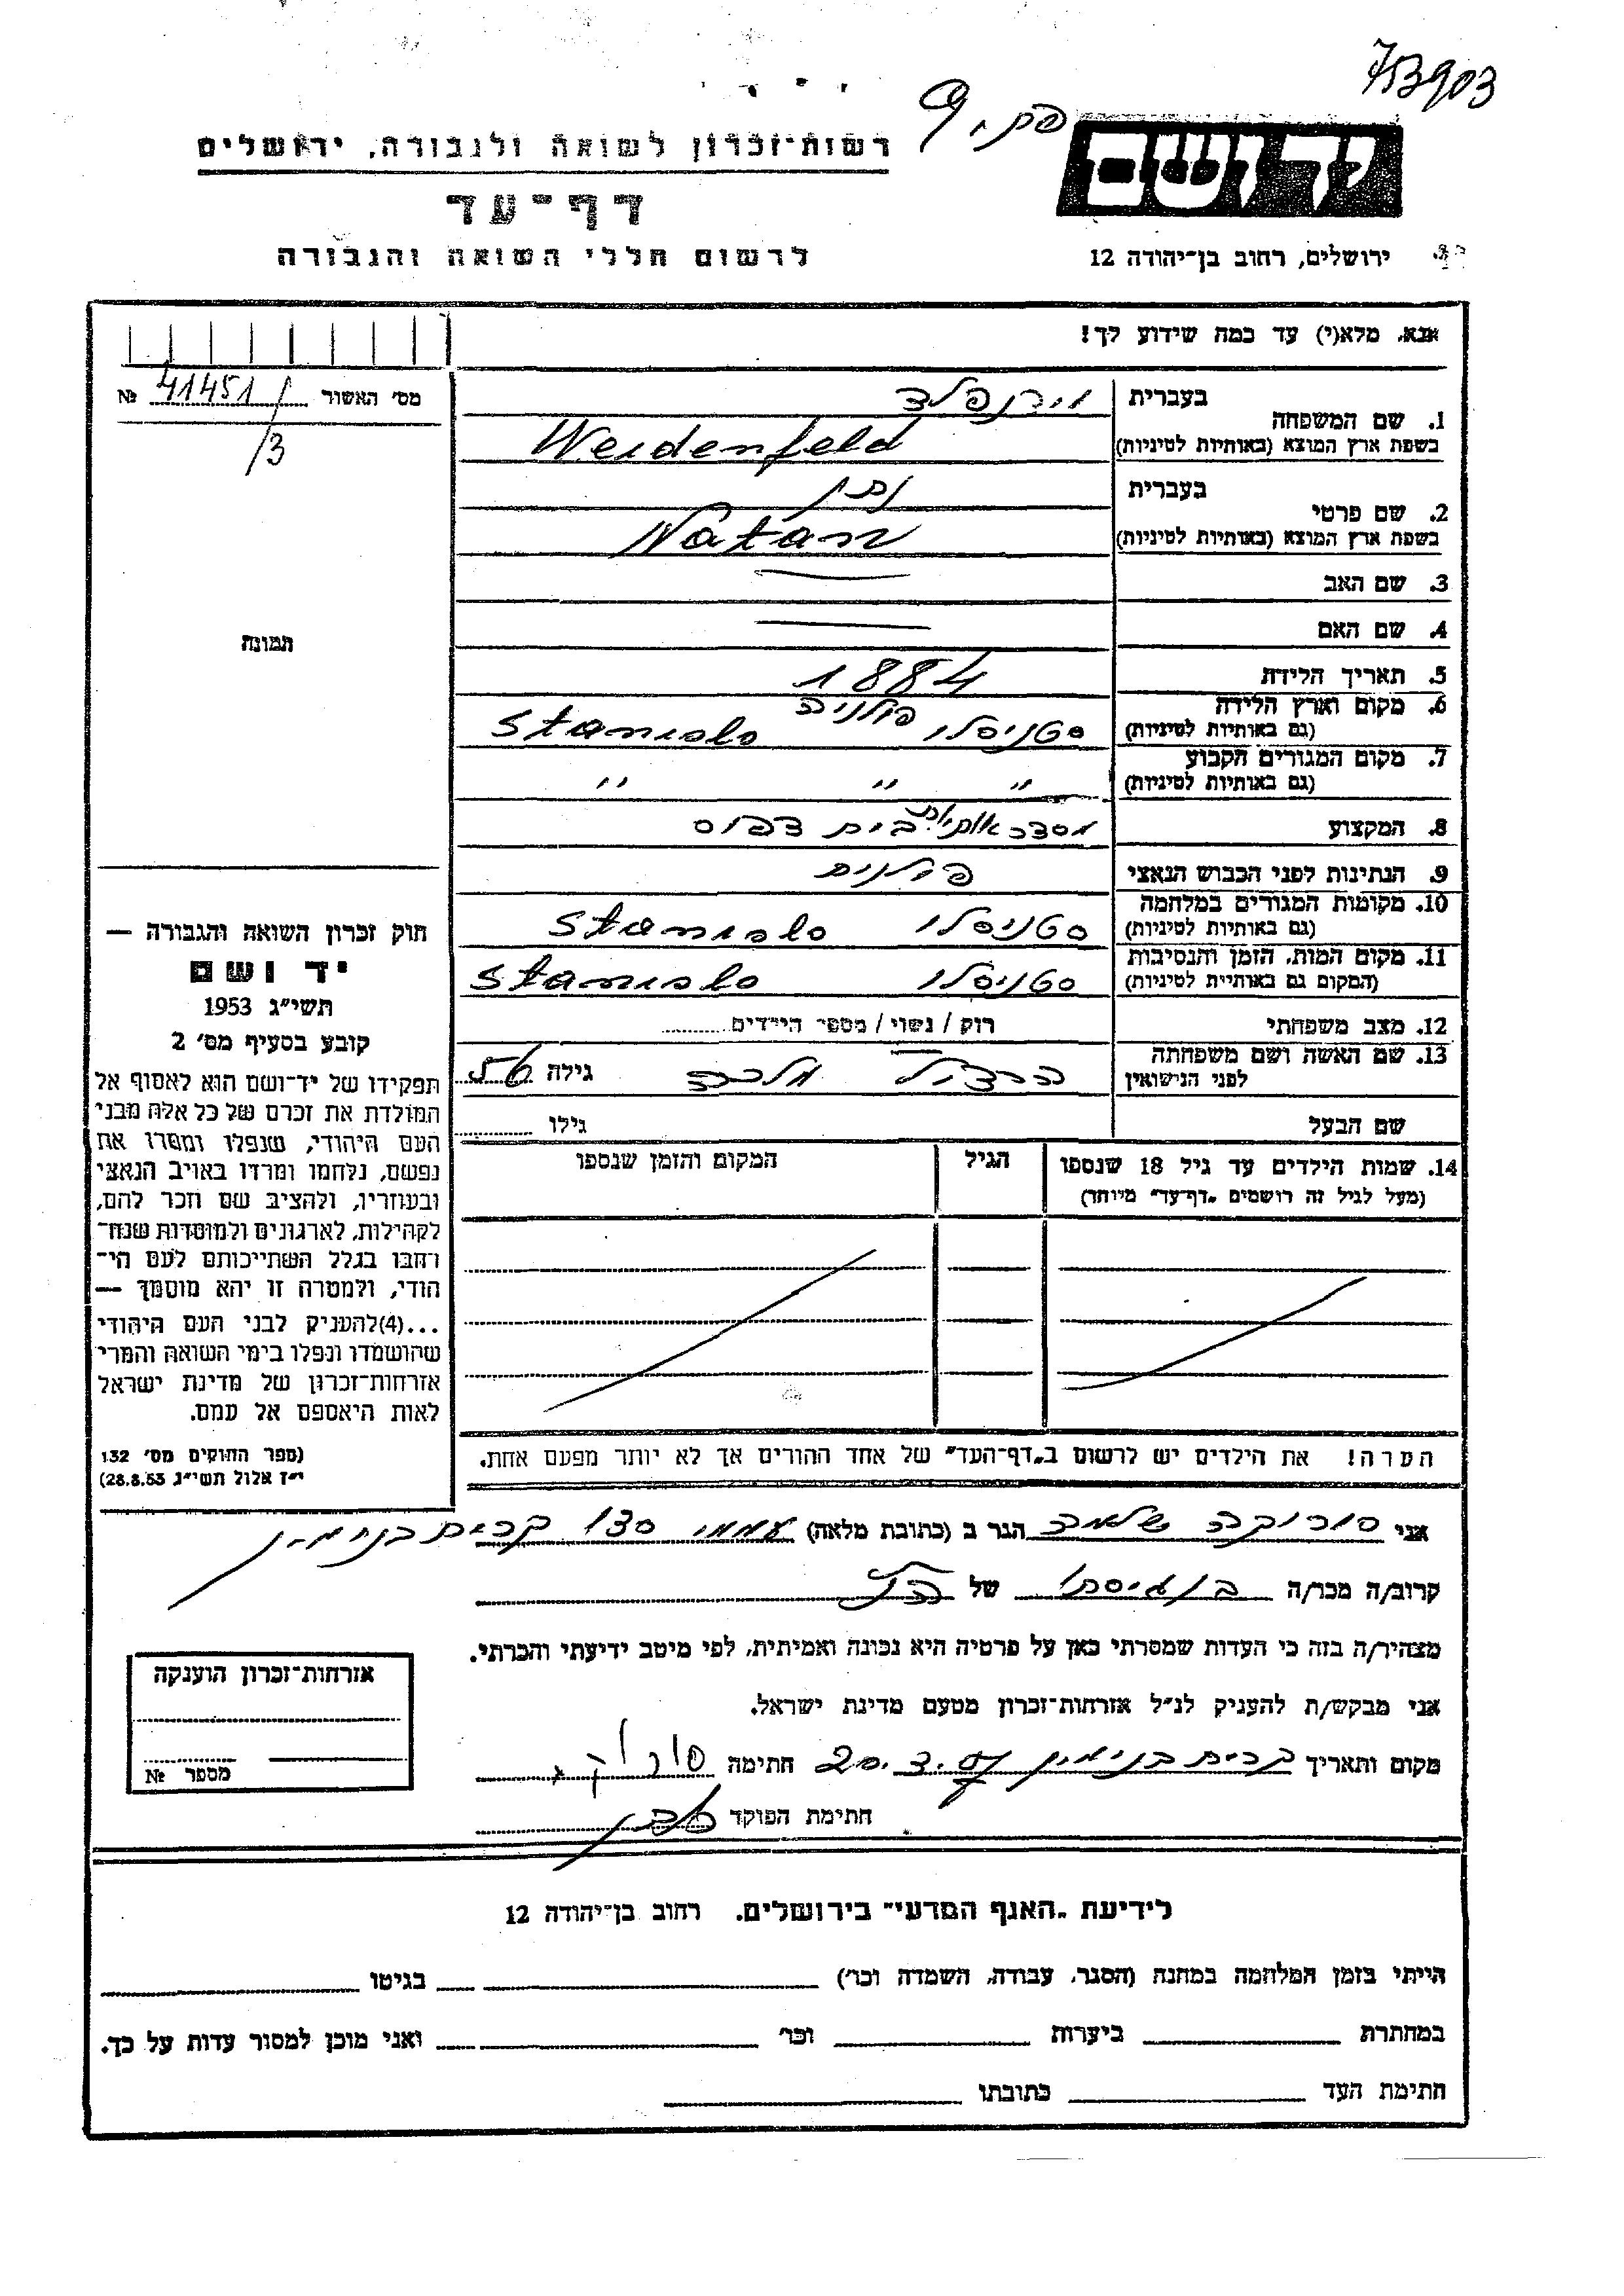 753903
פת. 9
יד ושם
רשות-זכרון לשואה ולגבורה, ירושלים
דף-עד
לרשום חללי השואה והגבורה
ירושלים, רחוב בן-יהודה 12
אנא, מלא(י) עד כמה שידוע לך!
מס' האשור 41451/ №
/3
1. שם המשפחה
בעברית וידנפלד
בשפת ארץ המוצא (באותיות לטיניות) Weidenfeld
2. שם פרטי
בעברית נתן
בשפת ארץ המוצא (באותיות לטיניות) Natan
3. שם האב —
4. שם האם —
תמונה
5. תאריך הלידה 1884
6. מקום וארץ הלידה סטניסלו פולניה Stanislo
(גם באותיות לטיניות)
7. מקום המגורים הקבוע " " "
(גם באותיות לטיניות)
8. המקצוע מסדר אותיות בית דפוס
9. הנתינות לפני הכבוש הנאצי פולנית
10. מקומות המגורים במלחמה סטניסלו Stanislo
(גם באותיות לטיניות)
11. מקום המות, הזמן והנסיבות סטניסלו Stanislo
(המקום גם באותיות לטיניות)
12. מצב משפחתי רוק / נשוי / מספר הילדים
13. שם האשה ושם משפחתה מלכה גילה 56
לפני הנישואין
שם הבעל גילו
14. שמות הילדים עד גיל 18 שנספו הגיל המקום והזמן שנספו
(מעל לגיל זה רושמים "דף-עד" מיוחד)
הערה! את הילדים יש לרשום ב"דף-העד" של אחד ההורים אך לא יותר מפעם אחת.
חוק זכרון השואה והגבורה —
יד ושם
תשי"ג 1953
קובע בסעיף מס' 2
תפקידו של יד-ושם הוא לאסוף אל
המולדת את זכרם של כל אלה מבני
העם היהודי, שנפלו ומסרו את
נפשם, נלחמו ומרדו באויב הנאצי
ובעוזריו, ולהציב שם וזכר להם,
לקהילות, לארגונים ולמוסדות שנח-
רחבו בגלל השתייכותם לעם הי-
הודי, ולמטרה זו יהא מוסמך —
...(4)להעניק לבני העם היהודי
שהושמדו ונפלו בימי השואה והמרי
אזרחות-זכרון של מדינת ישראל
לאות היאספם אל עמם.
(ספר החוקים מס' 132
י"ז אלול תשי"ג 28.8.53)
אני סורוקה שלמה הגר ב (כתובת מלאה) עממי 130 קרית בנימין
קרוב/ה מכר/ה בן גיסתו של הנ"ל
מצהיר/ה בזה כי העדות שמסרתי כאן על פרטיה היא נכונה ואמיתית, לפי מיטב ידיעתי והכרתי.
אני מבקש/ת להעניק לנ"ל אזרחות-זכרון מטעם מדינת ישראל.
מקום ותאריך קרית בנימין 20.3.57 חתימה סורוקה
חתימת הפוקד
אזרחות-זכרון הוענקה
מספר №
לידיעת "האגף המדעי" בירושלים, רחוב בן-יהודה 12
הייתי בזמן המלחמה במחנה (הסגר, עבודה, השמדה וכר') בגיטו
במחתרת ביערות וכר' ואני מוכן למסור עדות על כך.
חתימת העד כתובתו